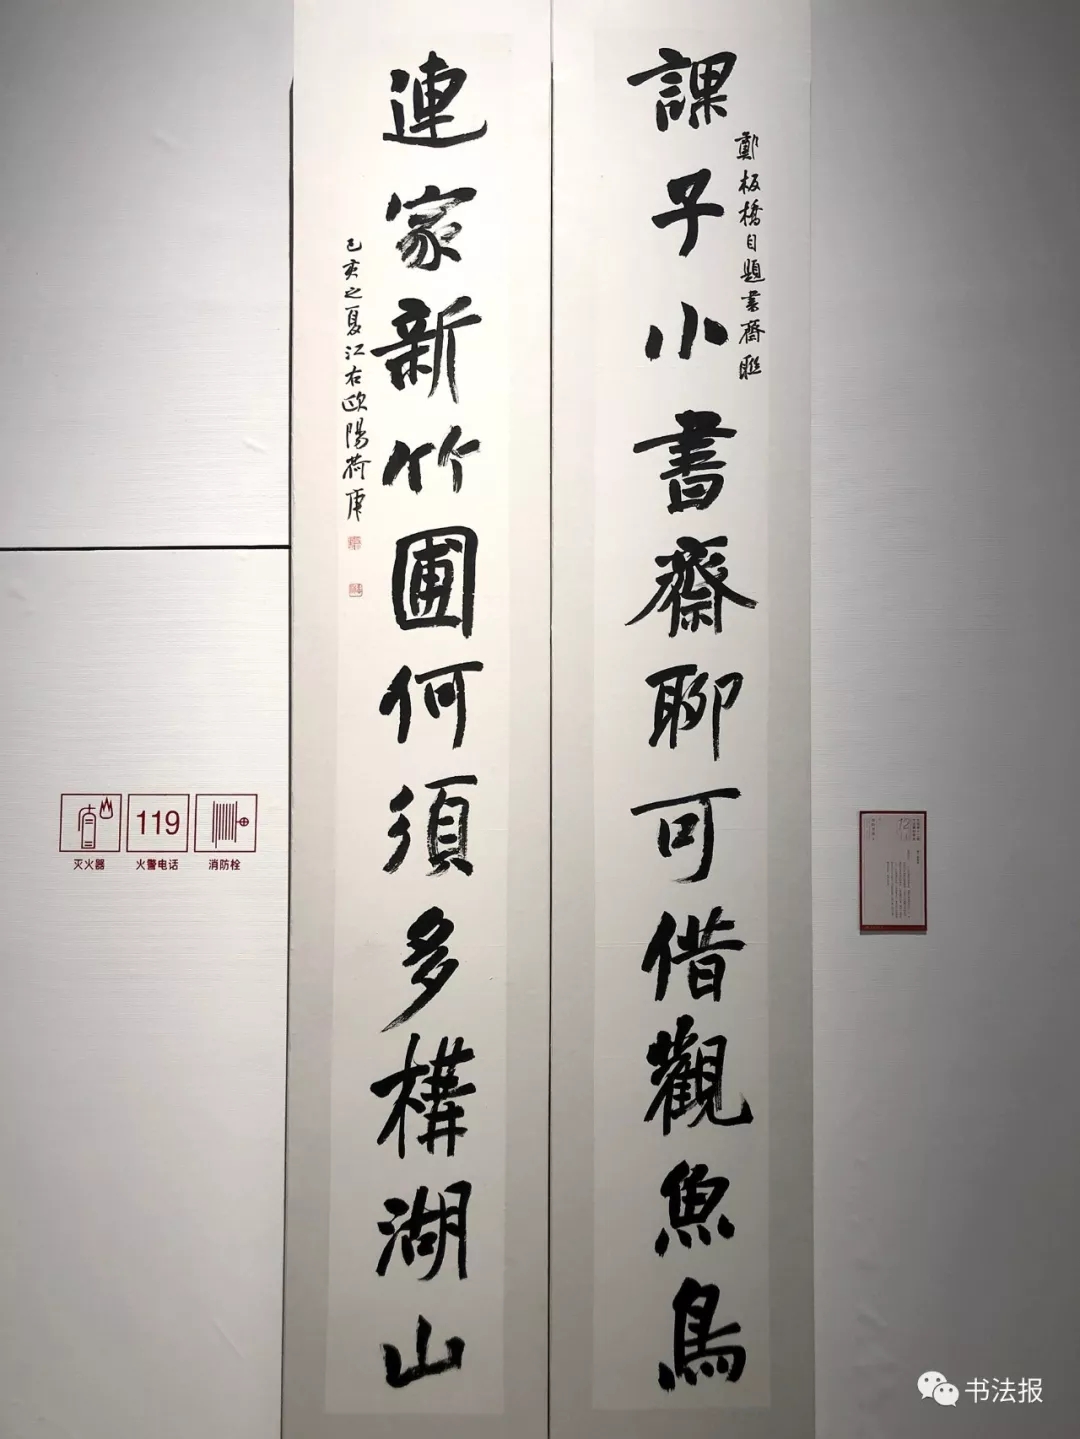 課子小書齋聊可借觀魚鳥
鄭板橋自題書齋聯
連家新竹圃何須多構湖山
己亥之夏江右歐陽荷庚
119
灭火器
火警电话
消防栓
12
书法报